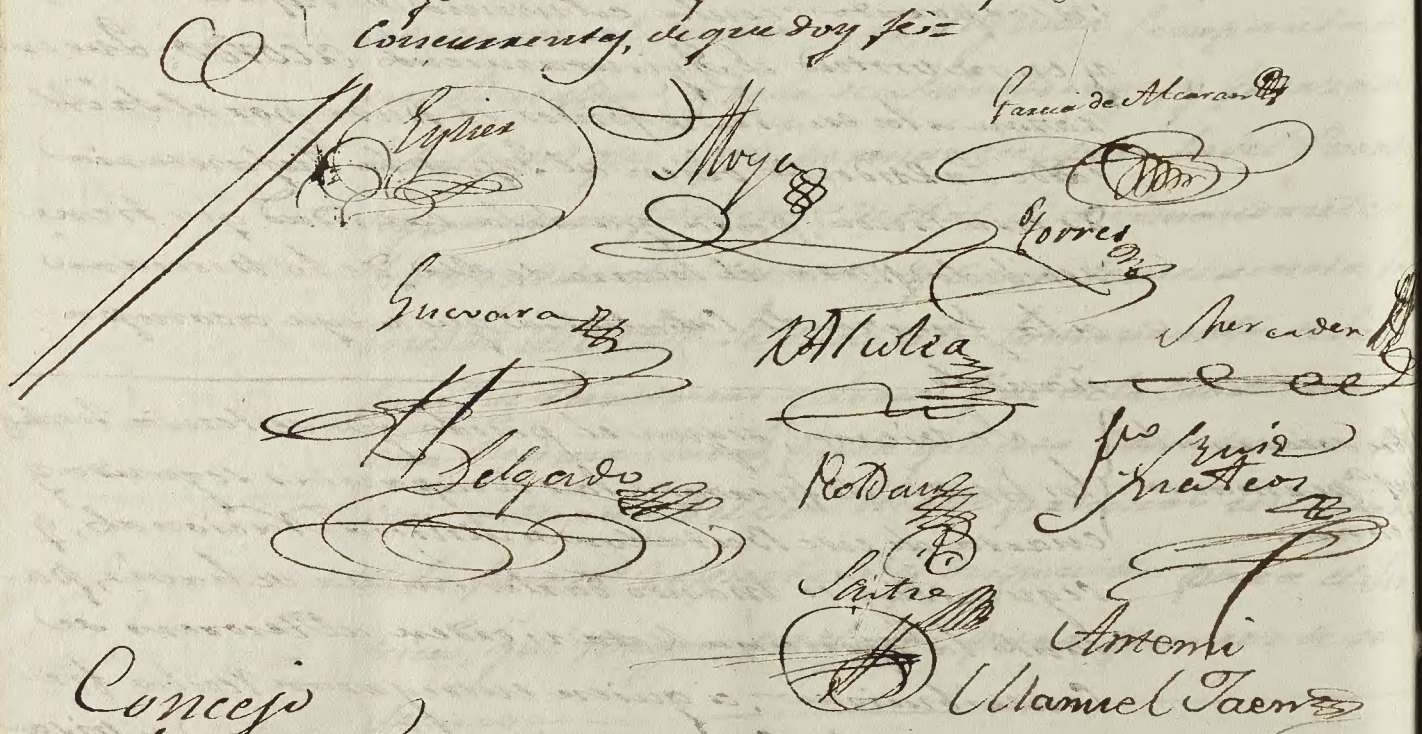 Concurrentes, de que doy fe=
Garcia de Alcaraz
Moya
Torres
Guevara
Alcolea
Mercader
Delgado
Roldan
Fco Ruiz
Mateos
Sastre
Antemi
Manuel Jaen
Concejo